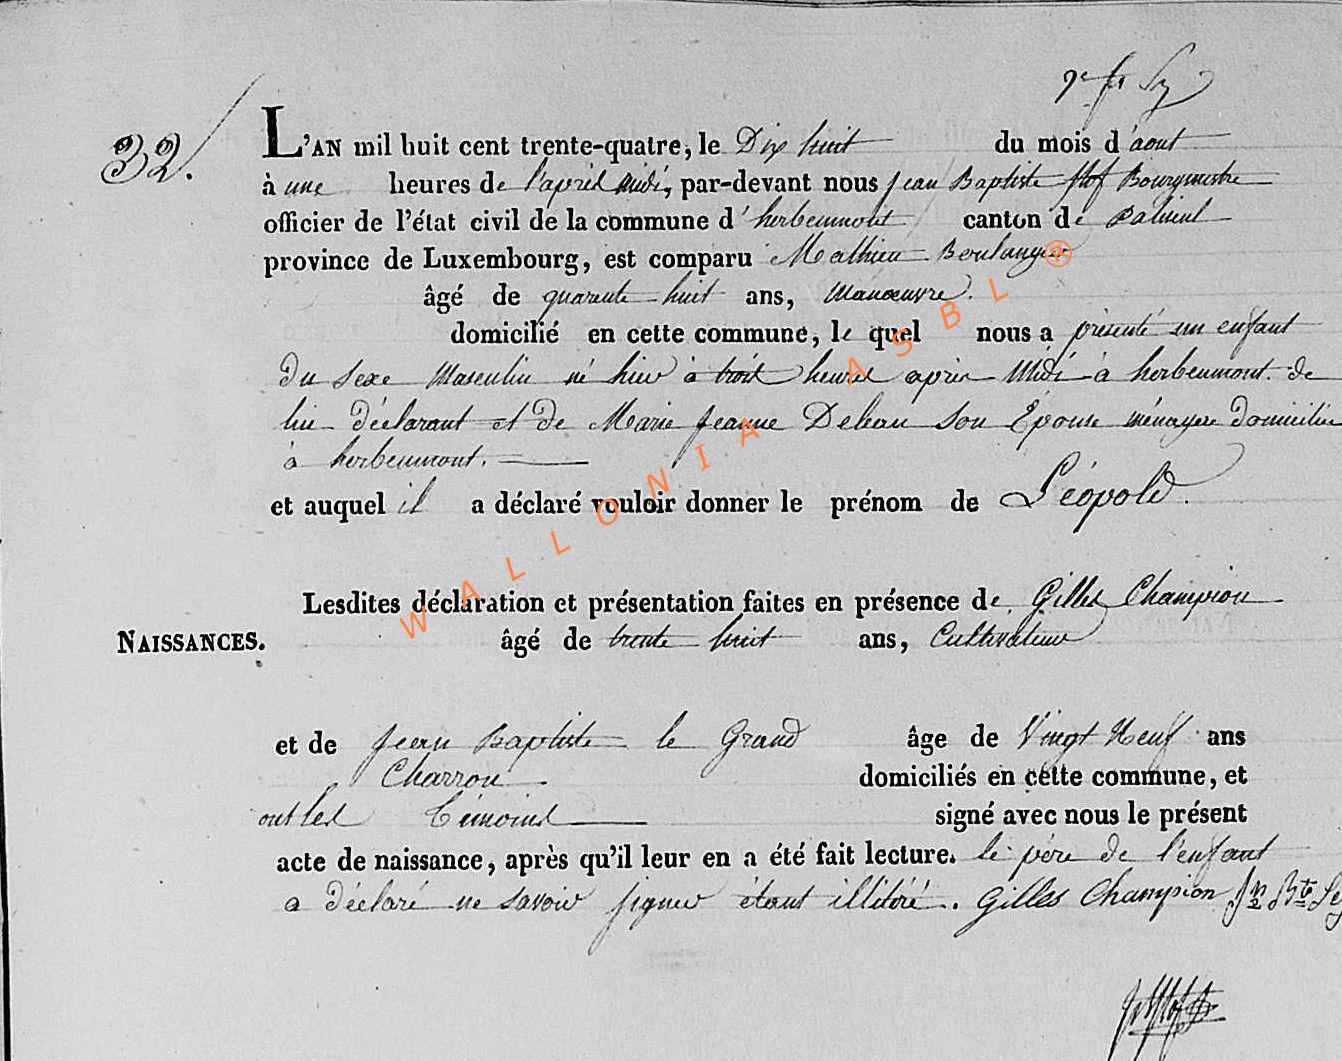 32.
L'AN mil huit cent trente-quatre, le Dix huit du mois d'aout
à une heures de l'après midi, par-devant nous jean Baptiste Bourgmestre
officier de l'état civil de la commune d'herbeumont canton de Paliseul
province de Luxembourg, est comparu Mathieu Boulanger
âgé de quarente huit ans, Manœuvre.
domicilié en cette commune, le quel nous a présenté un enfant
du sexe Masculin né hier à trois heures après Midi à herbeumont de
lui déclarant et de Marie jeanne Son Épouse ménagere domiciliée
à herbeumont.
et auquel il a déclaré vouloir donner le prénom de Léopold.
Lesdites déclaration et présentation faites en présence de Gilles Champion
NAISSANCES. âgé de trente huit ans, Cultivateur
et de jean Baptiste le Grand âge de Vingt Neuf ans
Charron domiciliés en cette commune, et
ont les témoins signé avec nous le présent
acte de naissance, après qu'il leur en a été fait lecture. le père de l'enfant
a déclaré ne savoir signer étant illitéré. Gilles Champion Jn Bte
WALLONIA ASBL ®